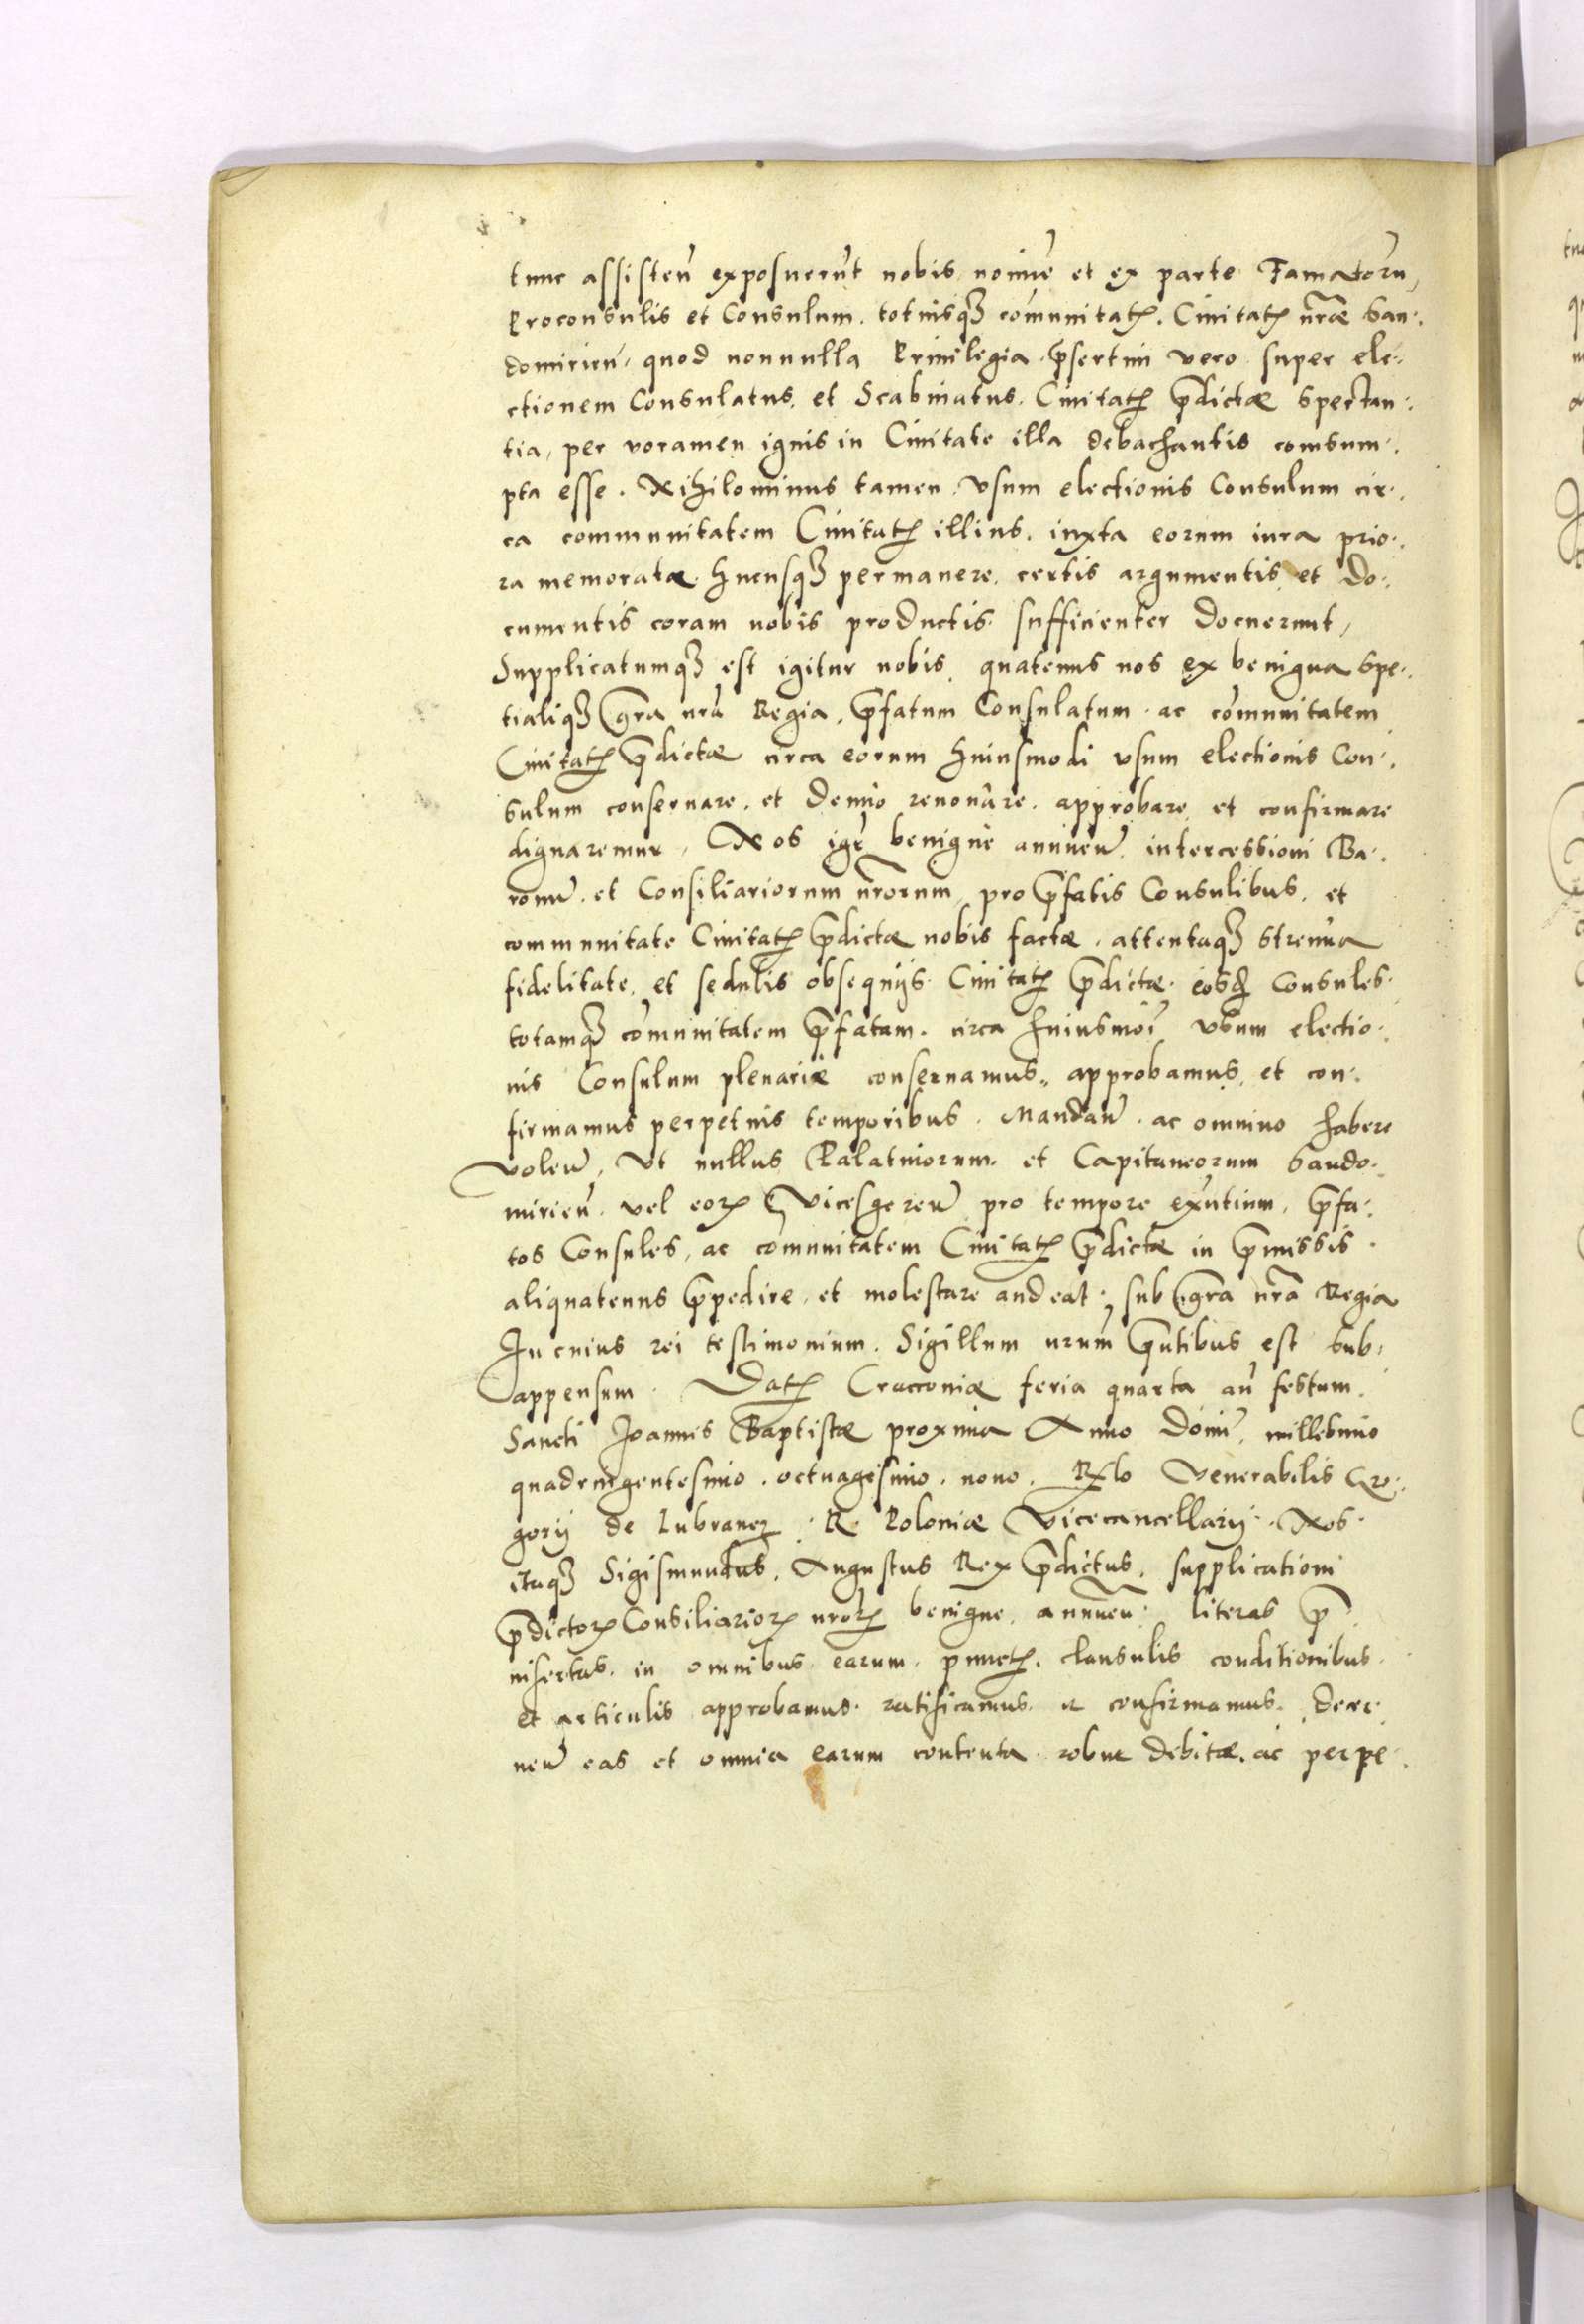 tunc assisteñ exposuerũt nobis noĩne et ex parte Famatorũ,
Proconsulis et Consulum. totiusqꝫ cõmunitatꝭ. Ciuitatꝭ nr̃æ San-
domirieñ, quod nonnulla Priuilegia p̃sertim vero super ele-
ctionem Consulatus, et Scabinatus. Ciuitatꝭ p̃dictæ spectan-
tia, per voramen ignis in Ciuitate illa debachantis comsum-
pta esse. Nihilominus tamen vsum electionis Consulum cir-
ca communitatem Ciuitatꝭ illius, iuxta eorum iura prio-
ra memoratæ hucusqꝫ permanere, certis argumentis et do-
cumentis coram nobis productis sufficienter docuerunt,
Supplicatumqꝫ est igitur nobis, quatenus nos ex benigna spe-
tialiqꝫ gr̃a nr̃a Regia, p̃fatum Consulatum ac cõmunitatem
Ciuitatꝭ p̃dictæ circa eorum huiusmodi vsum electionis Con-
sulum conseruare, et denuo renouare, approbare et confirmare
dignaremur, Nos igr̃ benigne annueñ intercessioni Ba-
ronũ et Consiliariorum nr̃orum pro p̃fatis Consulibus, et
communitate Ciuitatꝭ p̃dictæ nobis factæ, attentaqꝫ strenua
fidelitate, et sedulis obsequijs Ciuitatꝭ p̃dictæ eosdꝫ Consules
totamqꝫ cõmunitatem p̃fatam circa huiusmoĩ vsum electio-
nis Consulum plenariæ conseruamus, approbamus, et con-
firmamus perpetuis temporibus. Mandañ ac omnino habere
voleñ, Vt nullus Palatinorum et Capitaneorum Sando-
mirieñ vel eorꝝ Vicesgereñ pro tempore exñtium, p̃fa-
tos Consules, ac cõmunitatem Ciuitatꝭ p̃dictæ in p̃missis
aliquatenus p̃pedire, et molestare audeat, sub gr̃a nr̃a Regia
In cuius rei testimonium. Sigillum nr̃um p̃ntibus est sub-
appensum. Datꝭ Cracouiæ feria quarta añ festum
Sancti Joannis Baptistæ proxima Anno Domĩ millesimo
quadringentesimo octuagesimo nono. Rˀlo Venerabilis Gre-
gorij de Lubranecz R. Poloniæ Vicecancellarij. Nos
itaqꝫ Sigismundus Augustus Rex p̃dictus, supplicationi
p̃dictorꝝ Consiliariorꝝ nr̃orꝝ benigne annueñ literas p̃
insertas in omnibus earum punctꝭ, clausulis conditionibus
et articulis approbamus ratificamus et confirmamus. Decer-
neñ eas et omnia earum contenta robur debitæ ac perpe-